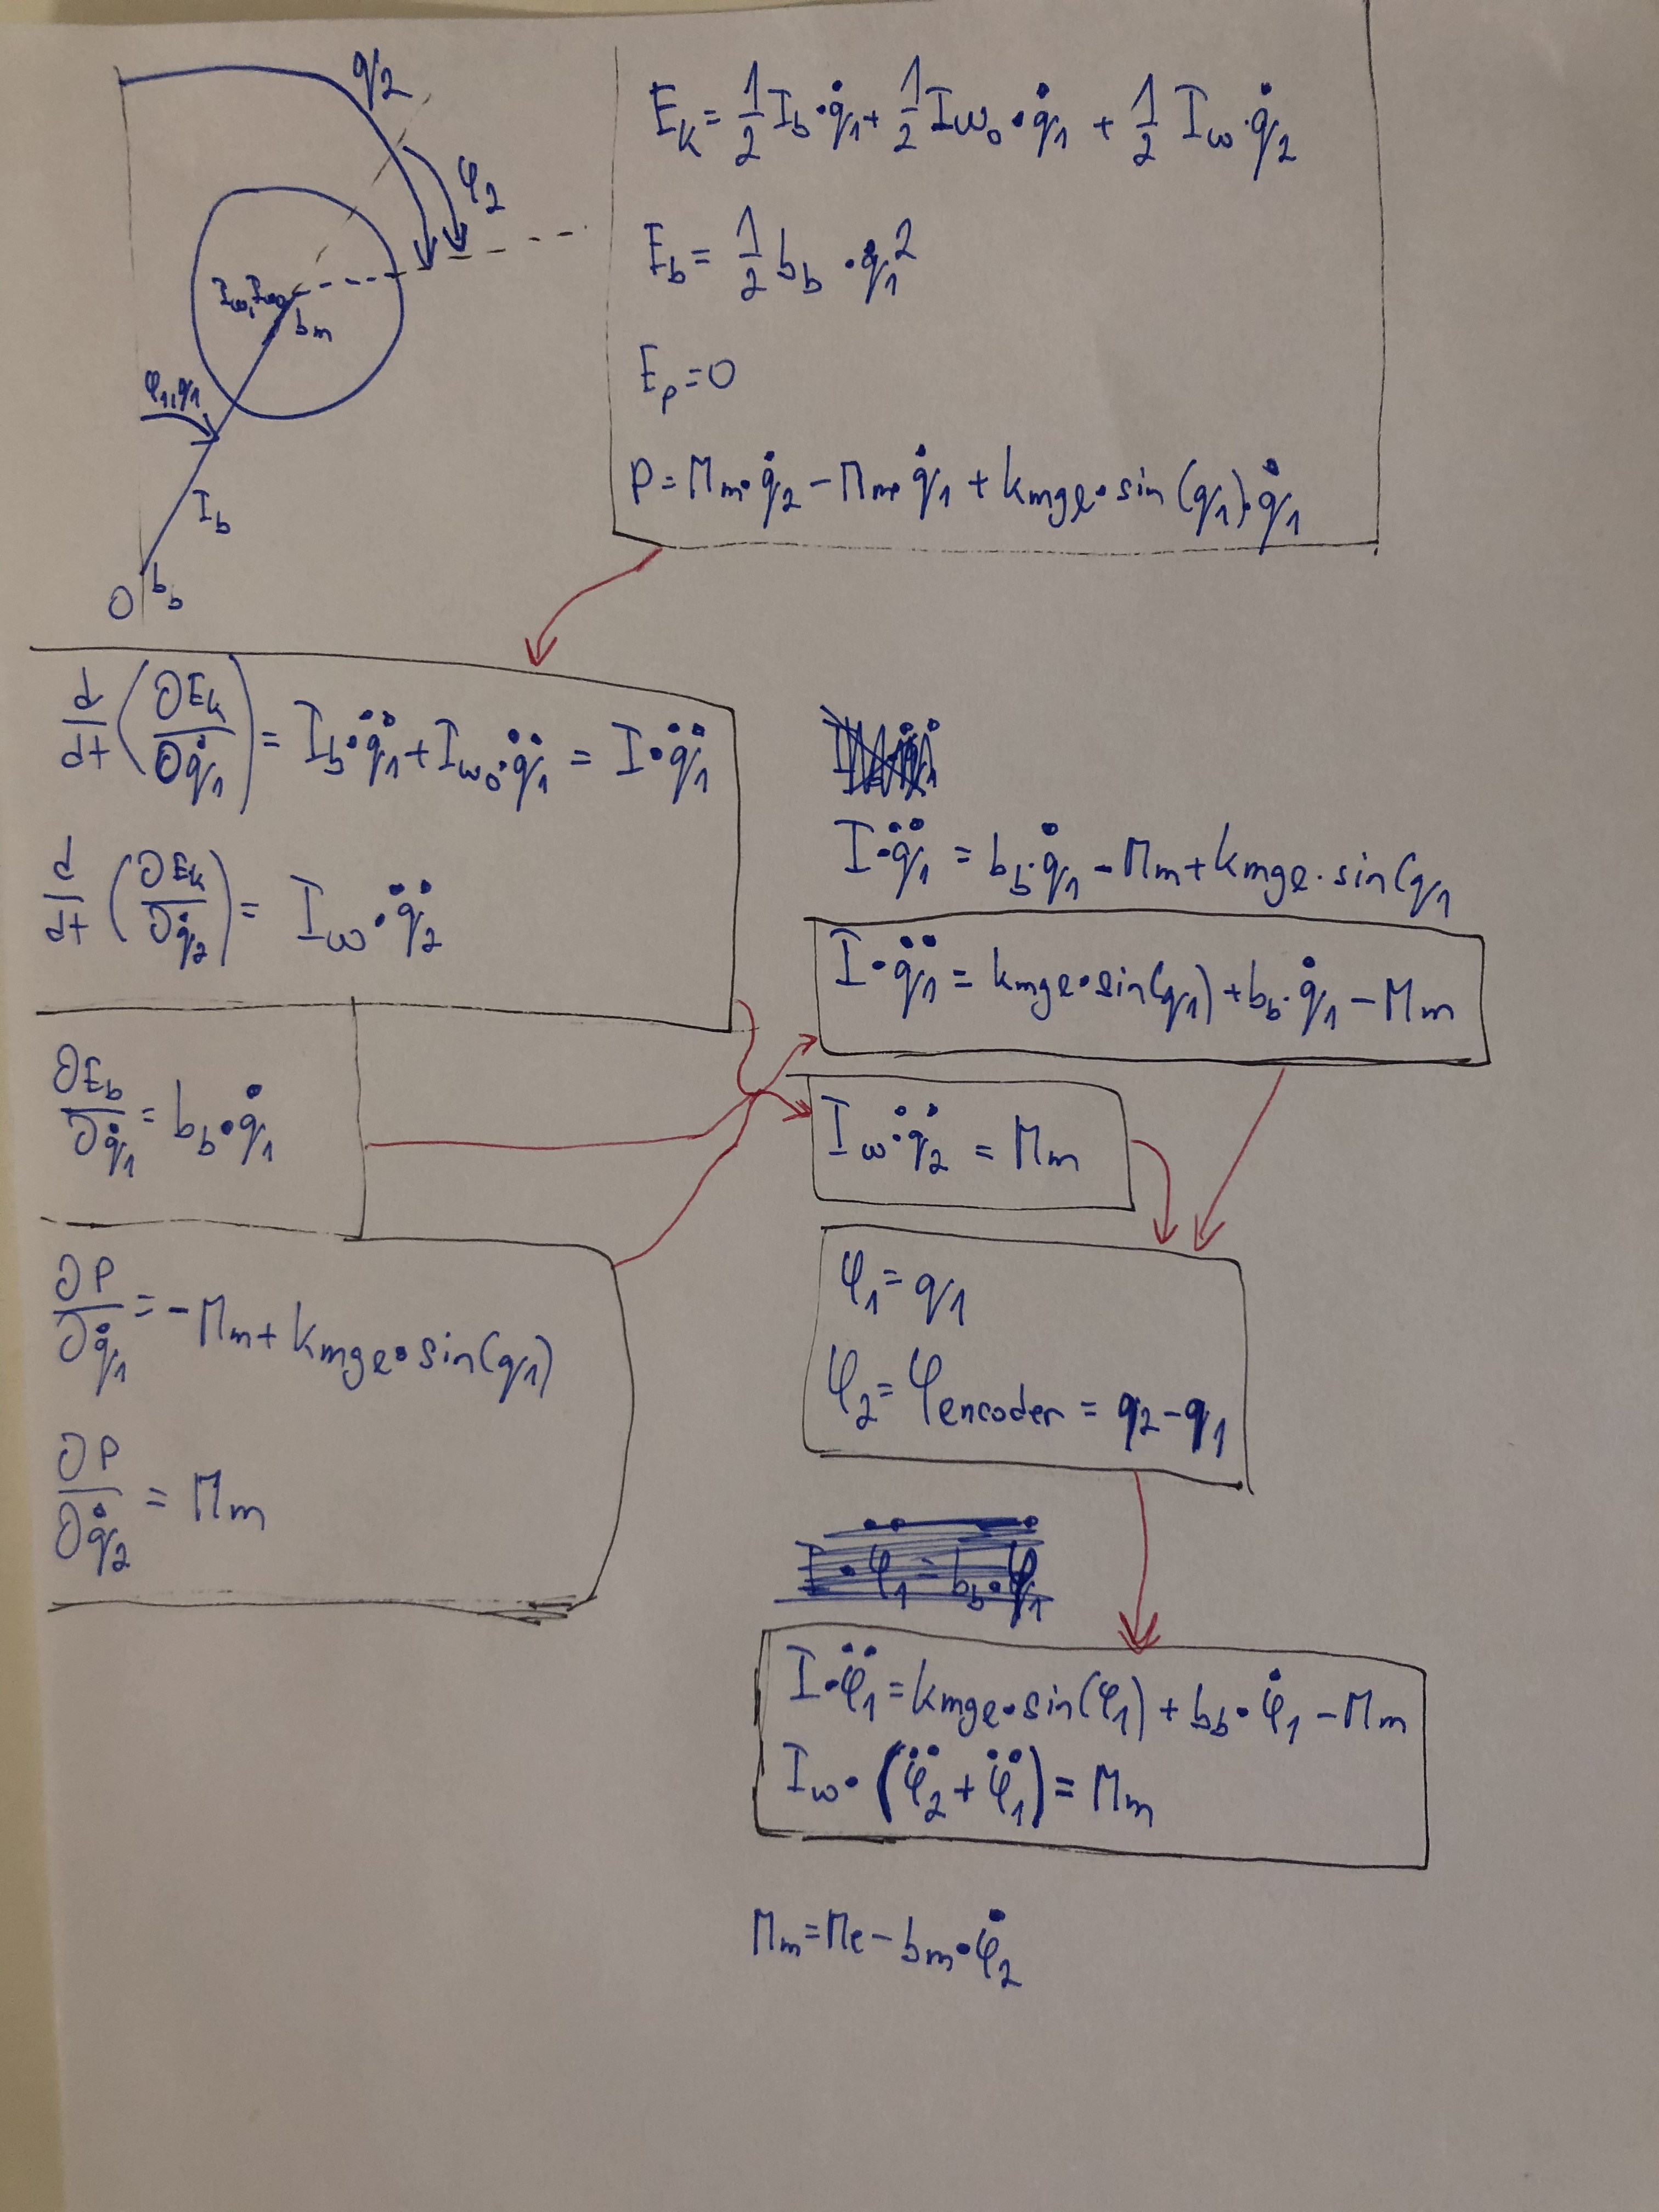 q2
φ2
Iω, Iω0
bm
φ1, q1
Ib
0
bb
Ek = 1/2 Ib·q̇1 + 1/2 Iω0·q̇1 + 1/2 Iω·q̇2
Eb = 1/2 bb·q1²
Ep = 0
P = Mm·q̇2 - Mm·q̇1 + kmgl·sin(q1)·q̇1
d/dt (∂Ek/∂q̇1) = Ib·q̈1 + Iω0·q̈1 = I·q̈1
d/dt (∂Ek/∂q̇2) = Iω·q̈2
∂Eb/∂q̇1 = bb·q̇1
∂P/∂q̇1 = -Mm + kmgl·sin(q1)
∂P/∂q̇2 = Mm
I·q̈1 = bb·q̇1 - Mm + kmgl·sin(q1
I·q̈1 = kmgl·sin(q1) + bb·q̇1 - Mm
Iω·q̈2 = Mm
φ1 = q1
φ2 = φencoder = q2 - q1
I·φ̈1 = kmgl·sin(φ1) + bb·φ̇1 - Mm
Iω·(φ̈2 + φ̈1) = Mm
Mm = Me - bm·φ̇2